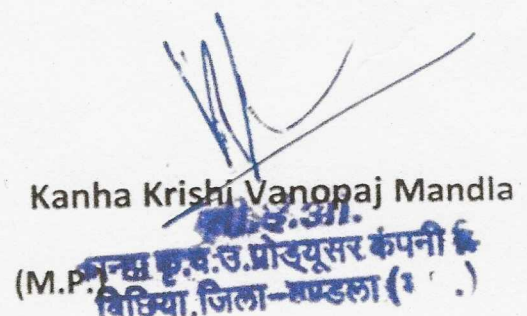 Kanha Krishi Vanopaj Mandla
सी.ई.ओ.
कान्हा कृ.व.उ.प्रोड्यूसर कंपनी
(M.P.)
बिछिया, जिला-मण्डला (
.)